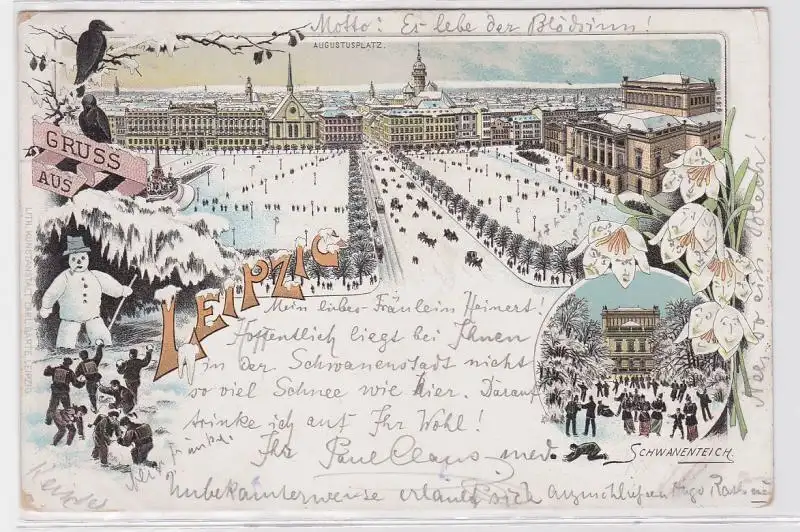 Motto: Es lebe der Blödsinn!
AUGUSTUSPLATZ.
GRUSS
AUS
LEIPZIG
Mein liebes Fräulein Heinert!
Hoffentlich liegt bei Ihnen
in der Schwanenstadt nicht
so viel Schnee wie hier. Darauf
trinke ich auf Ihr Wohl!
Ihr Paul Claus med.
Unbekannterweise erlaubt sich anzuschließen Hugo
SCHWANENTEICH.
so ein Pech!